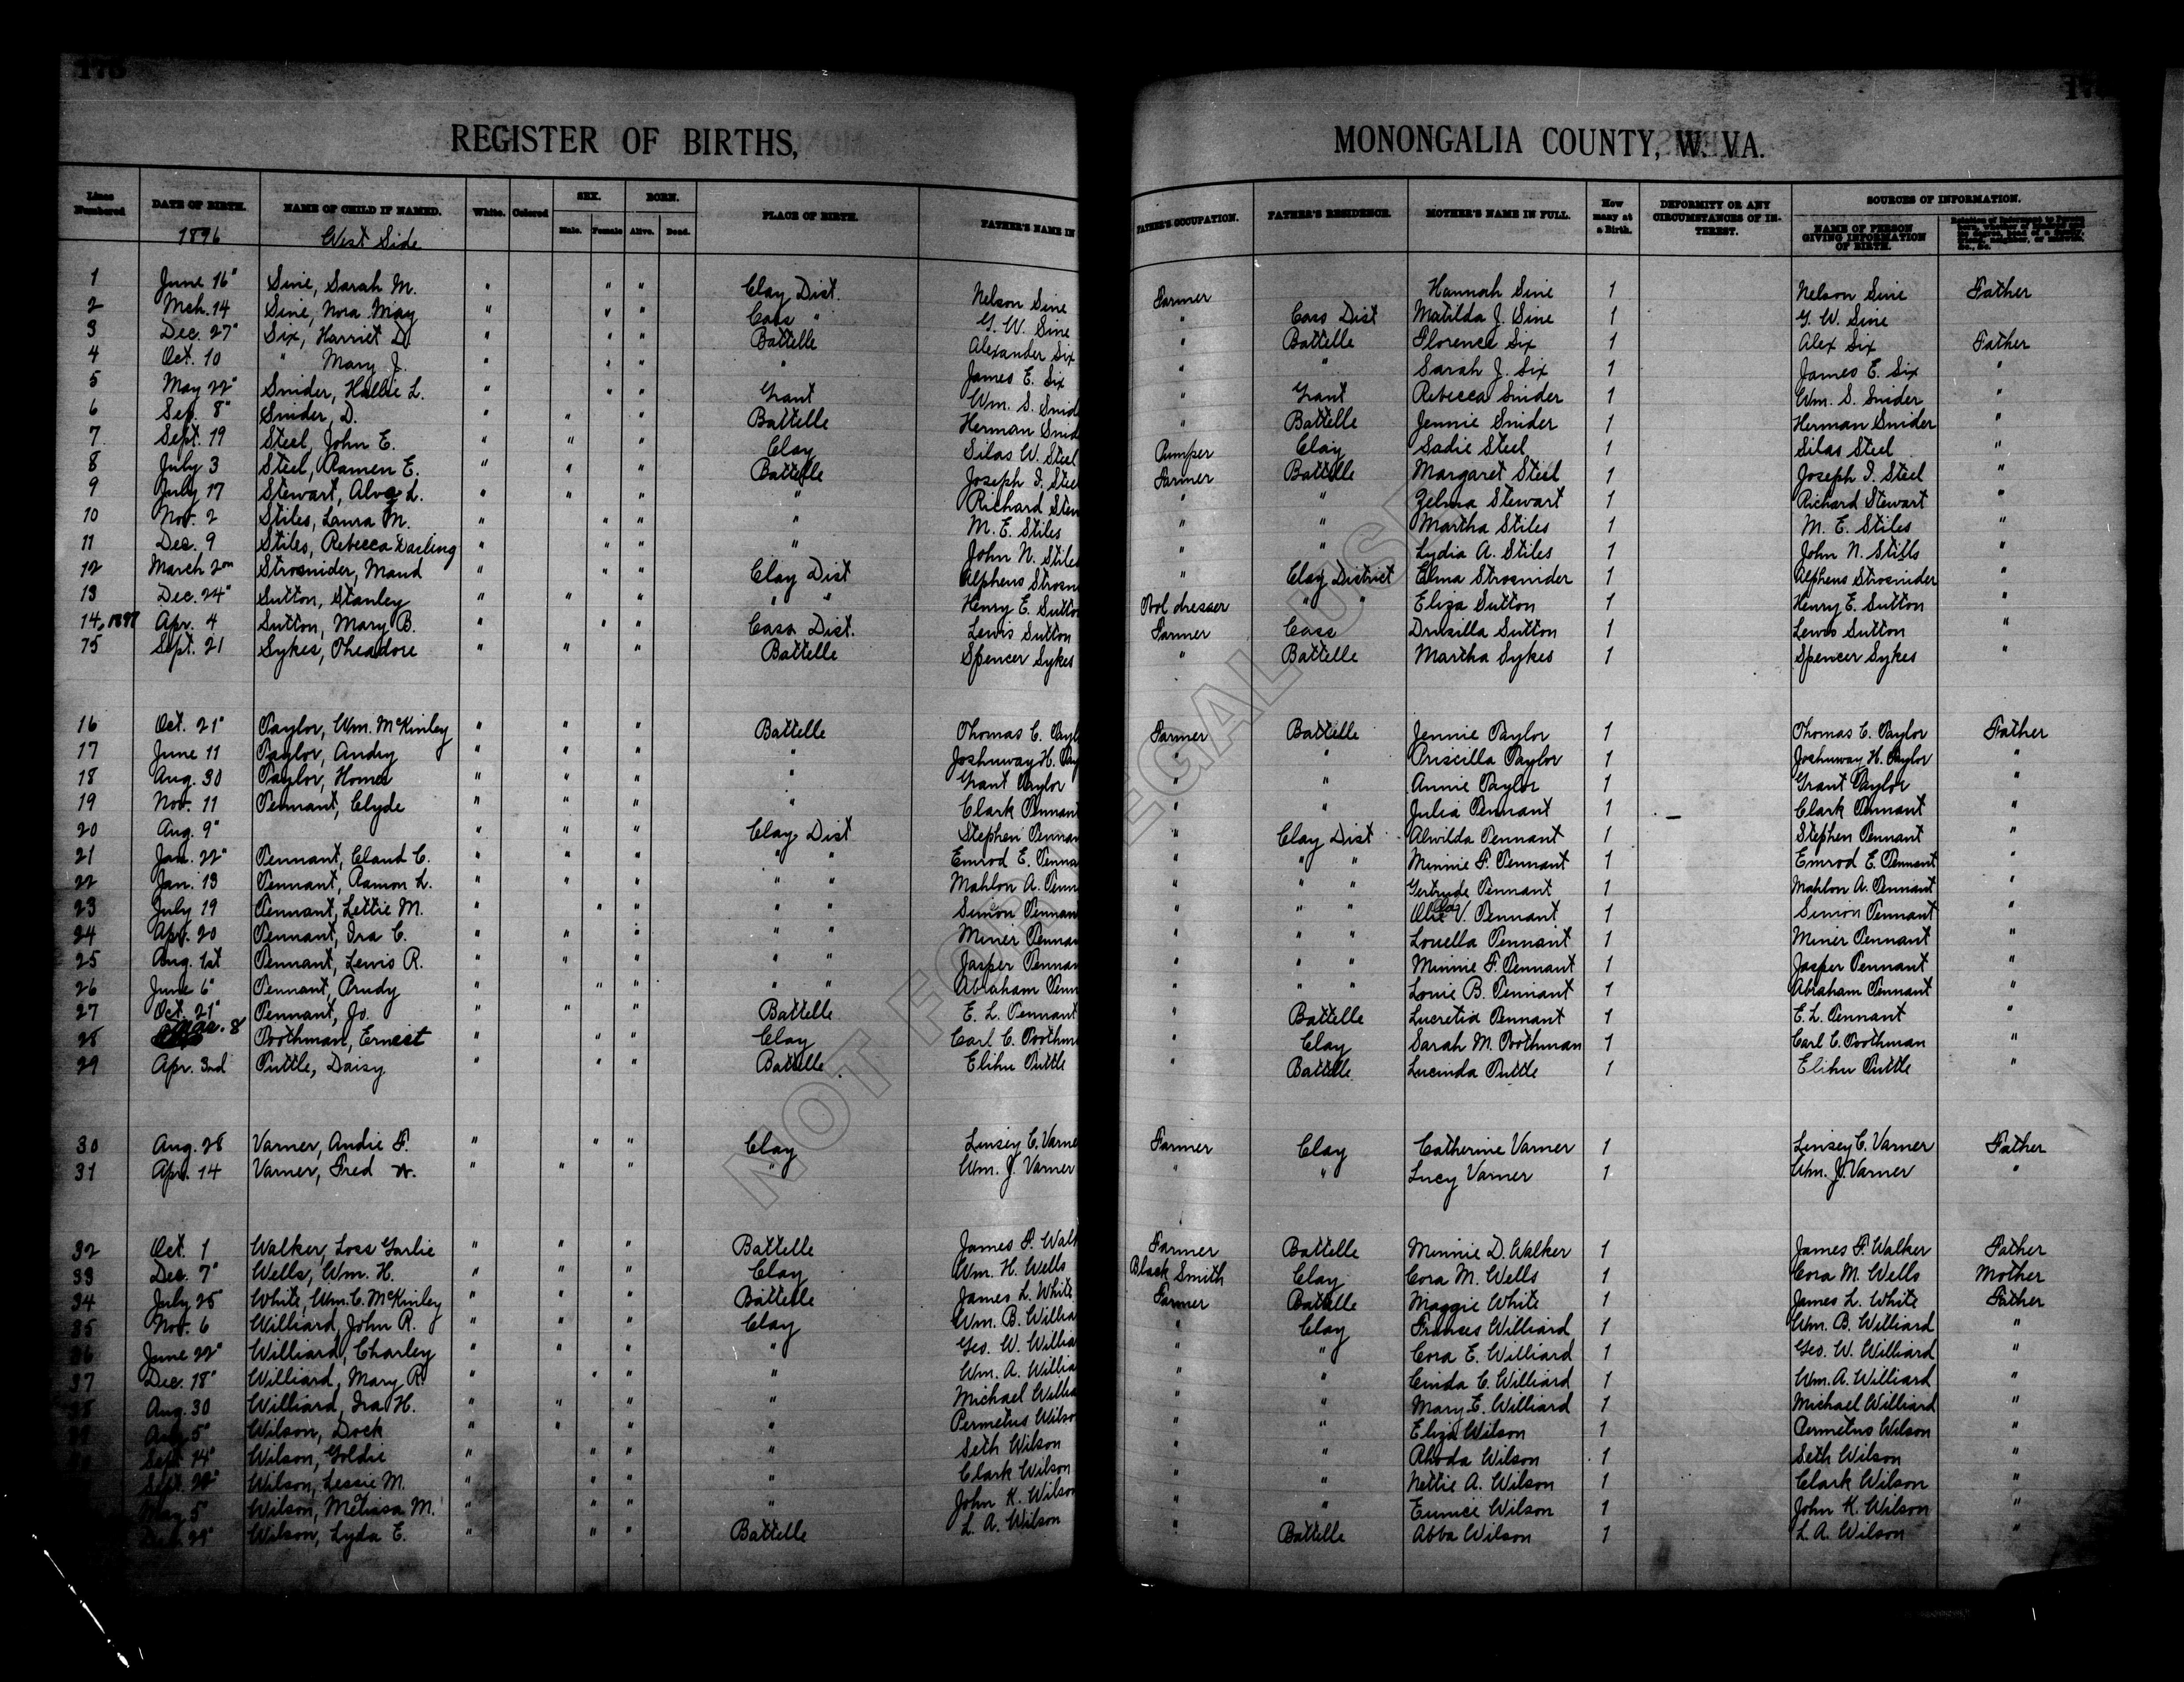 REGISTER OF BIRTHS, MONONGALIA COUNTY, W. VA.
Lines Numbered DATE OF BIRTH. NAME OF CHILD IF NAMED. White. Colored SEX. Male. Female BORN. Alive. Dead. PLACE OF BIRTH. FATHER'S NAME IN FATHER'S OCCUPATION. FATHER'S RESIDENCE. MOTHER'S NAME IN FULL. How many at a Birth. DEFORMITY OR ANY CIRCUMSTANCES OF INTEREST. SOURCES OF INFORMATION. NAME OF PERSON GIVING INFORMATION OF BIRTH.
1896 West Side
1 June 16" Sine, Sarah M. " " " Clay Dist. Nelson Sine Farmer Hannah Sine 1 Nelson Sine Father
2 Mch. 14 Sine, Nora May " " " Cass " G. W. Sine " Cass Dist Matilda J. Sine 1 G. W. Sine
3 Dec. 27" Six, Harriet D. " " " Battelle Alexander Six " Battelle Florence Six 1 Alex Six Father
4 Oct. 10 " Mary J. " " " " James E. Six " " Sarah J. Six 1 James E. Six "
5 May 22" Snider, Hallie L. " " " Grant Wm. S. Snid " Grant Rebecca Snider 1 Wm. S. Snider "
6 Sep. 8" Snider, D. " " " Battelle Herman Snid " Battelle Jennie Snider 1 Herman Snider "
7 Sept. 19 Steel, John E. " " " Clay Silas W. Steel Pumper Clay Sadie Steel 1 Silas Steel "
8 July 3 Steel, Ramen E. " " " Battelle Joseph I. Stee Farmer Battelle Margaret Steel 1 Joseph I. Steel "
9 July 17 Stewart, Alva L. " " " " Richard Stew " " Zelma Stewart 1 Richard Stewart "
10 Nov. 2 Stiles, Laura M. " " " " M. E. Stiles " " Martha Stiles 1 M. E. Stiles "
11 Dec. 9 Stiles, Rebecca Darling " " " " John N. Stiles " " Lydia A. Stiles 1 John N. Stills "
12 March 2nd Strosnider, Maud " " " Clay Dist Alpheus Strosn " Clay District Elma Strosnider 1 Alpheus Strosnider "
13 Dec. 24" Sutton, Stanley " " " " " Henry E. Sutto Tool dresser " " Eliza Sutton 1 Henry E. Sutton "
14, 1897 Apr. 4 Sutton, Mary B. " " " Cass Dist. Lewis Sutton Farmer Cass Drusilla Sutton 1 Lewis Sutton "
15 Sept. 21 Sykes, Theadore " " " Battelle Spencer Sykes " Battelle Martha Sykes 1 Spencer Sykes "
16 Oct. 21" Taylor, Wm. McKinley " " " Battelle Thomas C. Tayl Farmer Battelle Jennie Taylor 1 Thomas C. Taylor Father
17 June 11 Taylor, Andry " " " " Joshuway H. Tay " " Priscilla Taylor 1 Joshuway H. Taylor "
18 Aug. 30 Taylor, Homer " " " " Grant Taylor " " Annie Taylor 1 Grant Taylor "
19 Nov. 11 Tennant, Clyde " " " " Clark Tennant " " Julia Tennant 1 Clark Tennant "
20 Aug. 9" " " " Clay Dist Stephen Tennan " Clay Dist Alwilda Tennant 1 Stephen Tennant "
21 Jan. 22" Tennant, Claud C. " " " " " Emrod E. Tenna " " " Minnie F. Tennant 1 Emrod E. Tennant "
22 Jan. 13 Tennant, Ramon L. " " " " " Mahlon A. Tenn " " " Gertrude Tennant 1 Mahlon A. Tennant "
23 July 19 Tennant, Lettie M. " " " " " Simon Tennan " " " V. Tennant 1 Simon Tennant "
24 Apr. 20 Tennant, Ira C. " " " " " Miner Tennan " " " Louella Tennant 1 Miner Tennant "
25 Aug. 1st Tennant, Lewis R. " " " " " Jasper Tennan " " " Minnie F. Tennant 1 Jasper Tennant "
26 June 6" Tennant, Prudy " " " " " Abraham Tenn " " " Louie B. Tennant 1 Abraham Tennant "
27 Oct. 21" Tennant, Jo. " " " Battelle E. L. Tennant " Battelle Lucretia Tennant 1 E. L. Tennant "
28 Mar. 8 Toothman, Ernest " " " Clay Carl C. Toothm " Clay Sarah M. Toothman 1 Carl C. Toothman "
29 Apr. 3nd Tuttle, Daisy " " " Battelle Elihu Tuttle " Battelle Lucinda Tuttle 1 Elihu Tuttle "
30 Aug. 28 Varner, Andie F. " " " Clay Linsey C. Varne Farmer Clay Catherine Varner 1 Linsey C. Varner Father
31 Apr. 14 Varner, Fred W. " " " " Wm. J. Varner " " Lucy Varner 1 Wm. J. Varner "
32 Oct. 1 Walker, Loss Garlie " " " Battelle James F. Walk Farmer Battelle Minnie D. Walker 1 James F. Walker Father
33 Dec. 7" Wells, Wm. H. " " " Clay Wm. H. Wells Black Smith Clay Cora M. Wells 1 Cora M. Wells Mother
34 July 25 White, Wm. C. McKinley " " " Battelle James L. White Farmer Battelle Maggie White 1 James L. White Father
35 Nov. 6 Williard, John R. " " " Clay Wm. B. Willia " Clay Franses Williard 1 Wm. B. Williard "
36 June 22" Williard, Charley " " " " Geo. W. Willia " Cora E. Williard 1 Geo. W. Williard "
37 Dec. 18" Williard, Mary R. " " " " Wm. A. Willia " " Cinda C. Williard 1 Wm. A. Williard "
38 Aug. 30 Williard, Ira H. " " " " Michael Willia " " Mary E. Williard 1 Michael Williard "
Wilson, Dock " " " " Permetus Wilso " " Eliza Wilson 1 Permetus Wilson "
Sept 14" Wilson, Goldie " " " " Seth Wilson " " Rhoda Wilson 1 Seth Wilson "
Sept. Wilson, Lessie M. " " " " Clark Wilson " " Nettie A. Wilson 1 Clark Wilson "
May 5" Wilson, Melissa M. " " " " John K. Wilson " " Eunice Wilson 1 John K. Wilson "
Dec. 29" Wilson, Lyda E. " " " Battelle L. A. Wilson " Battelle Abba Wilson 1 L. A. Wilson "